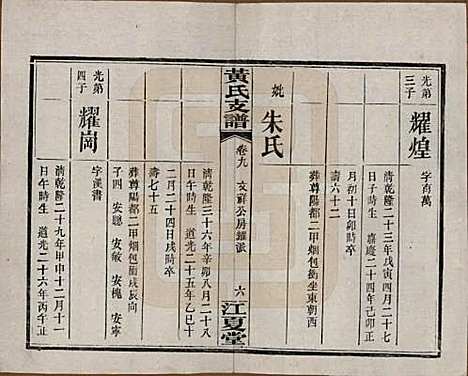 光弟三子
耀煌
字有萬
清乾隆二十三年戊寅四月二十七
日子時生 嘉慶二十四年己卯正
月初十日戌時卒
壽六十二
葬尊陽都二甲烟包衝坐東朝西
妣
朱氏
清乾隆三十六年辛卯八月二十八
日午時生 道光二十五年乙巳十
二月二十四日戌時卒
壽七十五
葬尊陽都二甲烟包衝戌辰向
子四 安聰 安敏 安槐 安寧
黃氏支譜
卷九
支祥公房鑑派
六
江夏堂
光弟四子
耀崗
字漢書
清乾隆二十九年甲申十二月十一
日午時生 道光二十六年丙午正